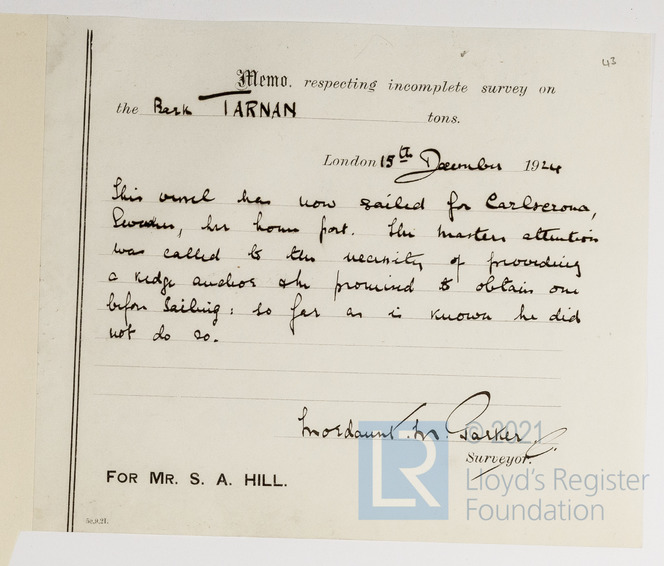 43
Memo. respecting incomplete survey on
the Bark TARNAN tons.
London 15th December 1924
This vessel has now sailed for Carlscrona,
Sweden, her home port. The masters attention
was called to the necessity of providing
a kedge anchor & he promised to obtain one
before sailing: so far as is known he did
not do so.
Mordaunt. M. Parker
Surveyor.
FOR MR. S. A. HILL.
LR
© 2021
Lloyd's Register
Foundation